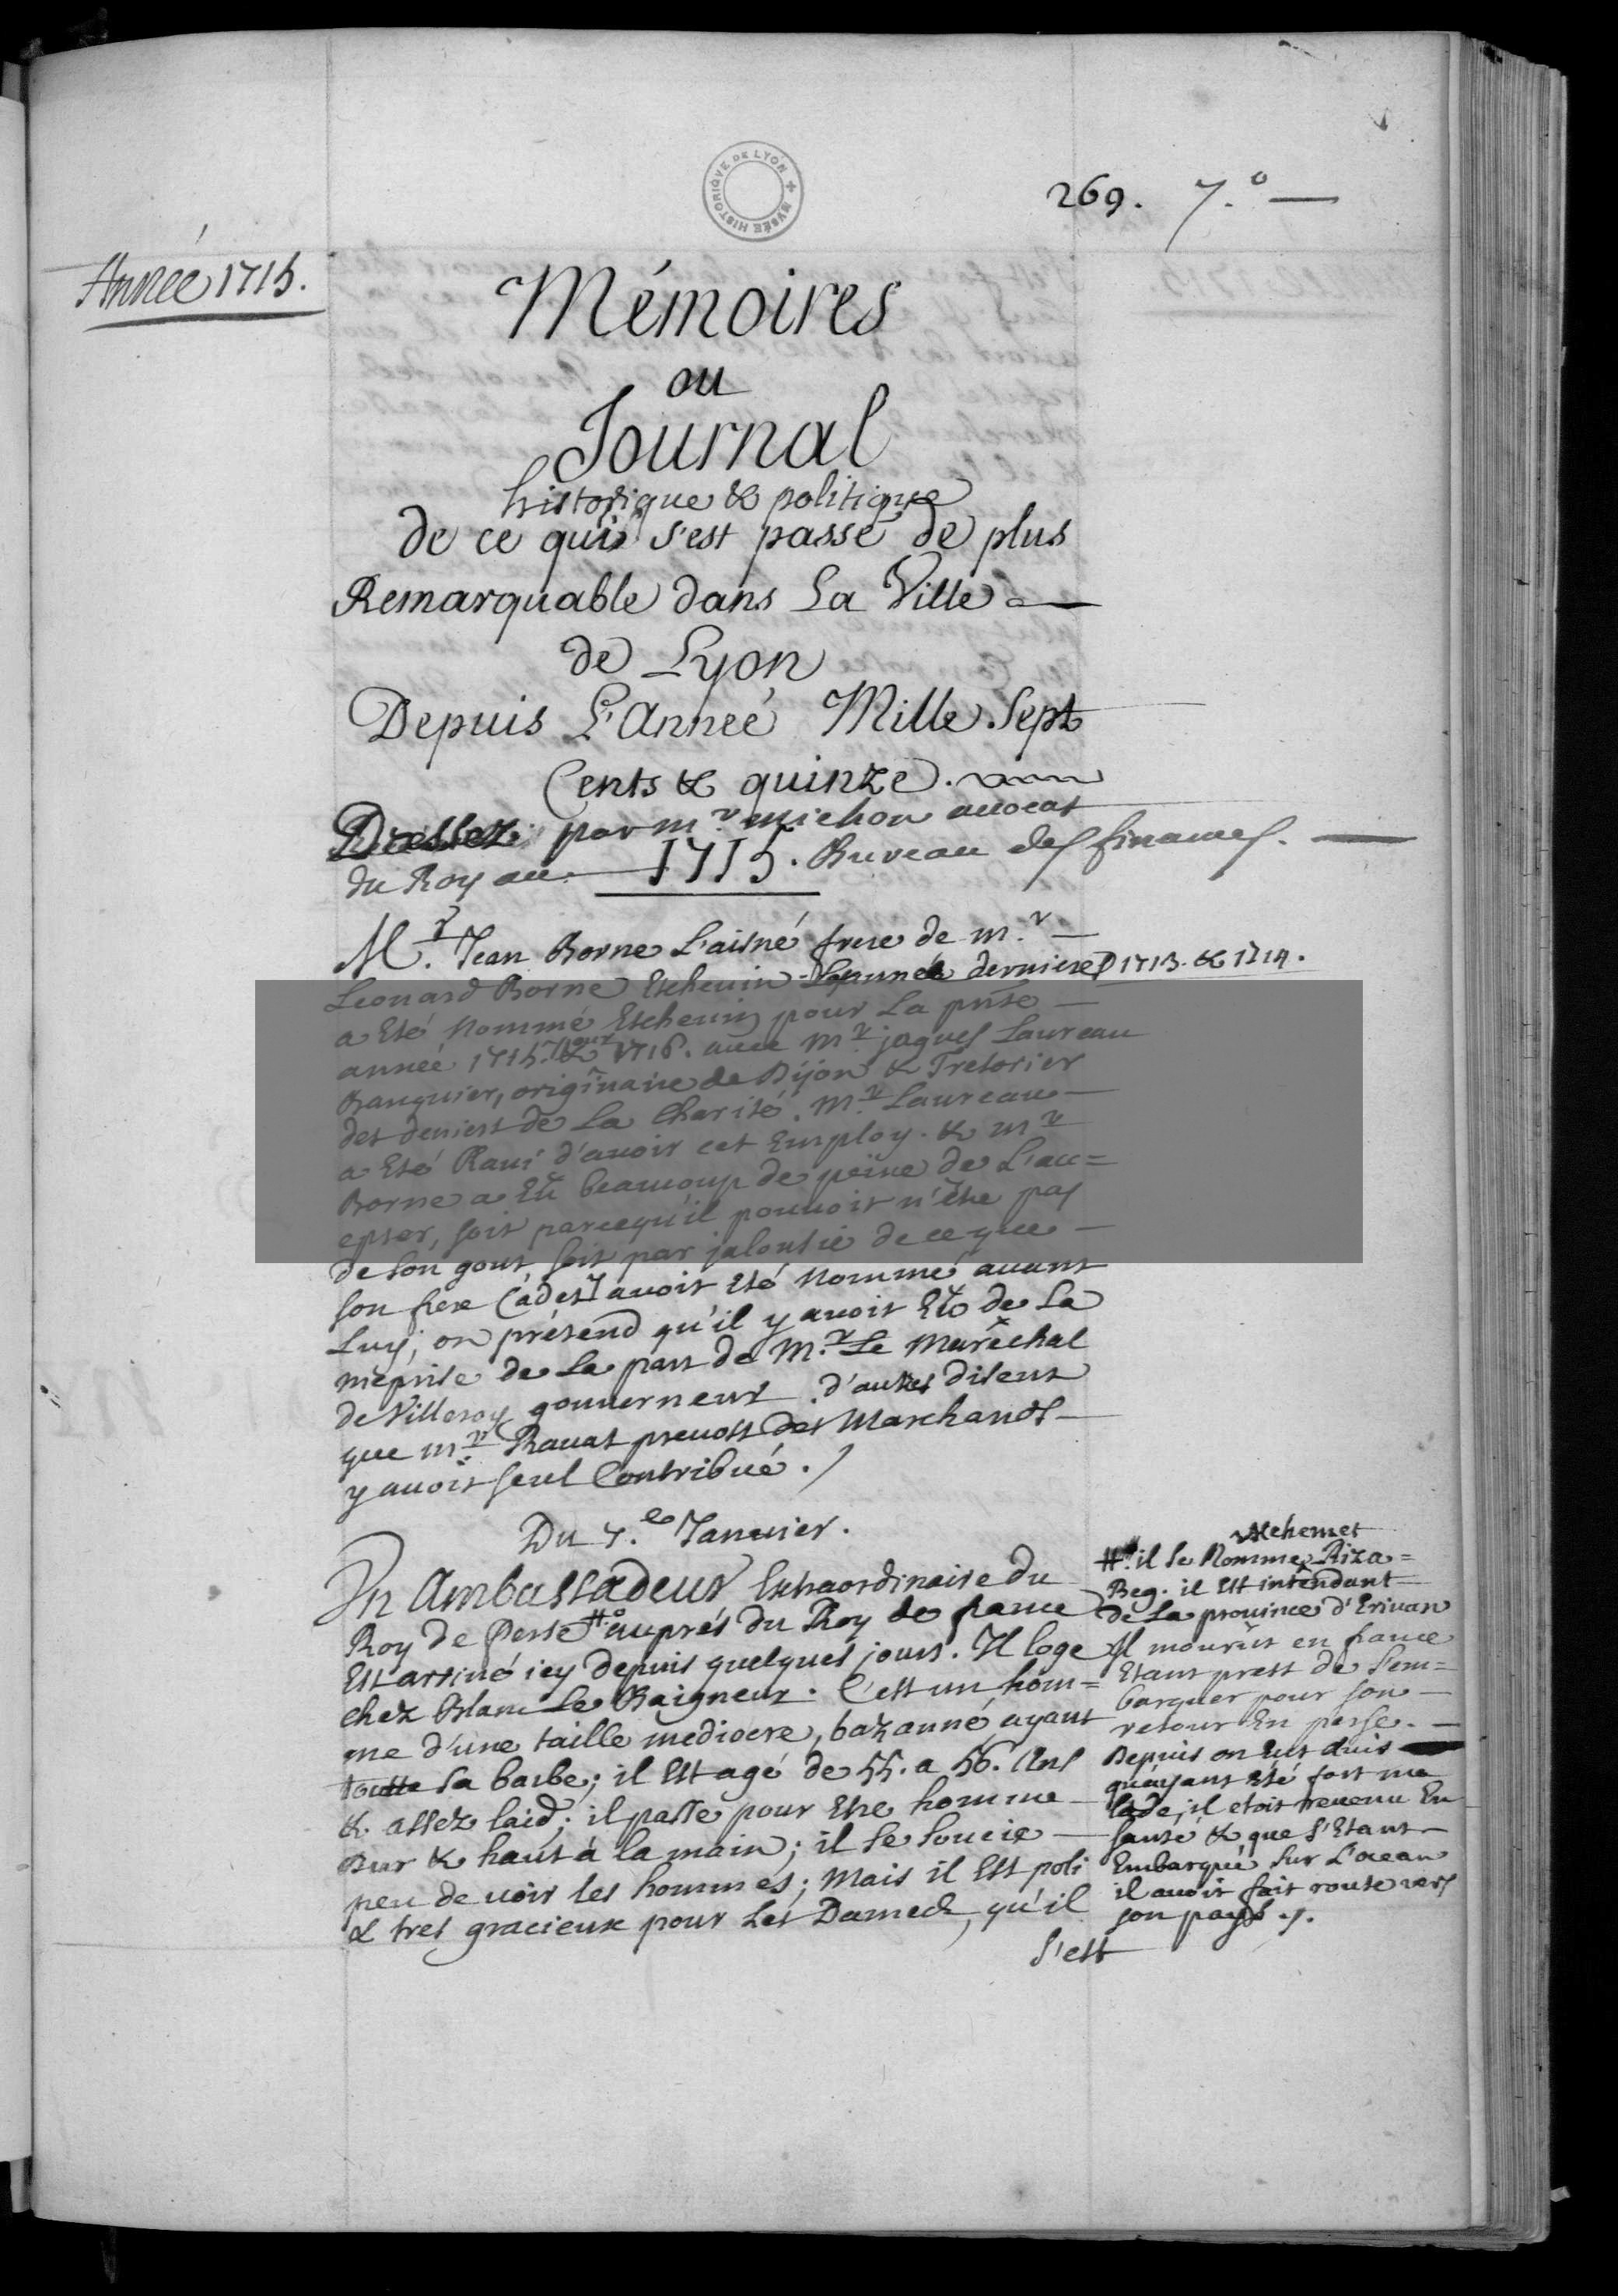 MVSÉE HISTORIQVE DE LYON
269. 7.º
Année 1715.
Mémoires
ou
Journal
historique & politique
de ce qui s'est passé de plus
Remarquable dans La Ville
de Lyon
Depuis L'Anneé Mille Sept
Cents & quinze.
Dressez par mr. michon auocat
du Roy au Bureau des finances.
1715.
Mr. Jean Borne L'aisné frere de mr.
Leonard Borne Escheuin L'année derniere 1713. & 1714.
a Eté Nommé Escheuin pour La pnte
anneé 1715. & 1716. auec Mr. jaques Laureau
Banquier, originaire de Dijon & Tresorier
des deniers de La Charité. Mr. Laureau
a Eté Raui d'auoir cet Employ. & mr
Borne a Eü beaucoup de peine de L'ac=
epter, soit parcequ'il pouuoit n'être pas
de son gout, soit par jalousie de ce que
son frere Cadet auoit Eté Nommé auant
Luy; on prétend qu'il y auoit Eü de La
méprise de La part de Mr. Le Maréchal
de Villeroy gouuerneur. d'autres disent
que mr. Rauat preuost des Marchands
y auoit seul Contribué.
Du 7.e Januier.
Un Ambassadeur Extraordinaire du
Roy de Perse # auprés du Roy de france
Est arriué icy depuis quelques jours. Il loge
chez Blanc Le Baigneur. C'est un hom=
me d'une taille mediocre, bazanné ayant
toutte sa barbe; il Est agé de 55. a 56. Ans
& assez laid; il passe pour Etre homme
Dur & haut à la main; il se soucie
peu de uoir les hommes; mais il Est poli
& tres gracieux pour Les Dames, qu'il
s'est
Mehemet
#. il se Nomme Riza=
Beg. il Est intendant
de La prouince d'Eriuan
Il mourut en france
Etant prest de s'em=
barquer pour son
retour En perse.
Depuis on Eut auis
qu'ayant Eté fort ma
lade, il etoit reuenu En
santé & que s'Etant
Embarqué sur L'ocean
il auoit fait route uers
son pays.